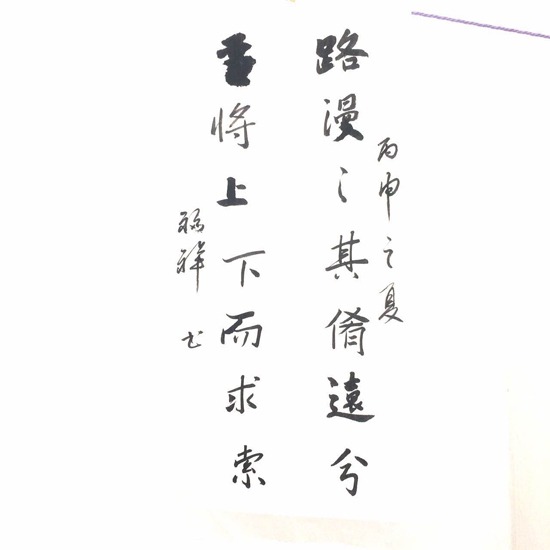 丙申之夏
路漫々其脩遠兮
將上下而求索
福祥书